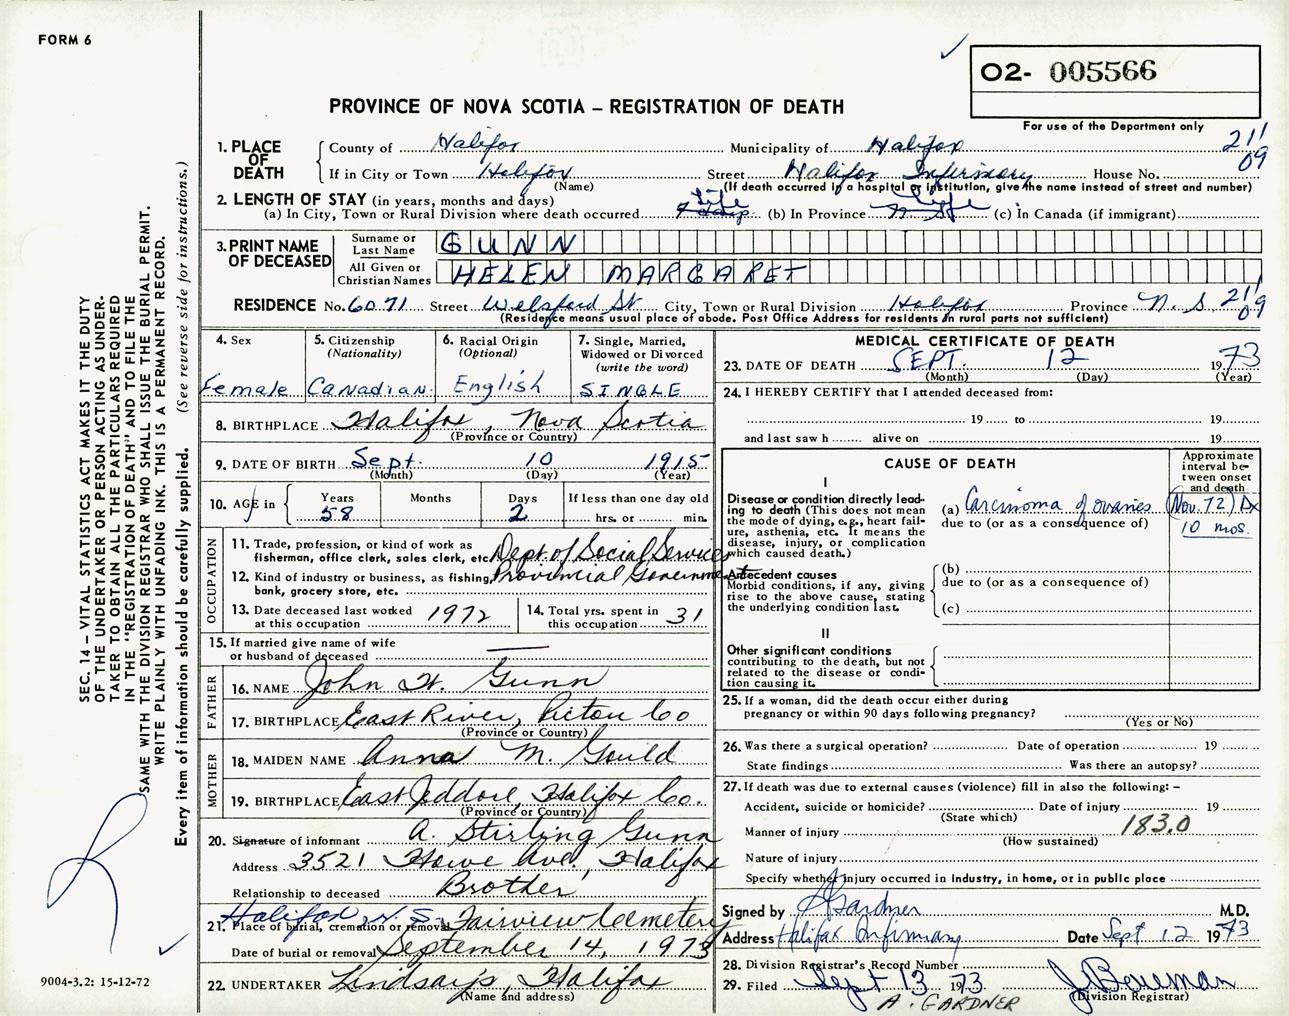 FORM 6
O2- 005566
PROVINCE OF NOVA SCOTIA – REGISTRATION OF DEATH
For use of the Department only
1. PLACE OF DEATH
County of Halifax Municipality of Halifax 211
If in City or Town Halifax Street Halifax Infirmary House No. 09
(Name) (If death occurred in a hospital or institution, give the name instead of street and number)
2. LENGTH OF STAY (in years, months and days)
(a) In City, Town or Rural Division where death occurred Life (b) In Province Life (c) in Canada (if immigrant)
3. PRINT NAME OF DECEASED
Surname or Last Name GUNN
All Given or Christian Names HELEN MARGARET
RESIDENCE No. 6071 Street Welsford St City, Town or Rural Division Halifax Province N.S. 211 09
(Residence means usual place of abode. Post Office Address for residents in rural parts not sufficient)
4. Sex
Female
5. Citizenship
(Nationality)
CANADIAN
6. Racial Origin
(Optional)
English
7. Single, Married,
Widowed or Divorced
(write the word)
SINGLE
8. BIRTHPLACE Halifax, Nova Scotia
(Province or Country)
9. DATE OF BIRTH Sept. 10 1915
(Month) (Day) (Year)
10. AGE in Years Months Days If less than one day old
58 2 hrs. or min.
OCCUPATION
11. Trade, profession, or kind of work as
fisherman, office clerk, sales clerk, etc. Dept. of Social Services
12. Kind of industry or business, as fishing, Provincial Government
bank, grocery store, etc.
13. Date deceased last worked
at this occupation 1972
14. Total yrs. spent in
this occupation 31
15. If married give name of wife
or husband of deceased —
FATHER
16. NAME John W. Gunn
17. BIRTHPLACE East River, Pictou Co
(Province or Country)
MOTHER
18. MAIDEN NAME Anna M. Gould
19. BIRTHPLACE East Jeddore, Halifax Co.
(Province or Country)
20. Signature of informant A. Stirling Gunn
Address 3521 Howe Ave., Halifax
Relationship to deceased Brother
Halifax N.S.
21. Place of burial, cremation or removal Fairview Cemetery
Date of burial or removal September 14, 1973
22. UNDERTAKER Lindsay's, Halifax
(Name and address)
MEDICAL CERTIFICATE OF DEATH
23. DATE OF DEATH SEPT. 12 1973
(Month) (Day) (Year)
24. I HEREBY CERTIFY that I attended deceased from:
19 to 19
and last saw h alive on 19
CAUSE OF DEATH
Approximate
interval be-
tween onset
and death
I
Disease or condition directly lead-
ing to death (This does not mean
the mode of dying, e.g., heart fail-
ure, asthenia, etc. It means the
disease, injury, or complication
which caused death.)
(a) Carcinoma of ovaries (Nov. 72) Dx
due to (or as a consequence of) 10 mos.
Antecedent causes
Morbid conditions, if any, giving
rise to the above cause, stating
the underlying condition last.
(b)
due to (or as a consequence of)
(c)
II
Other significant conditions
contributing to the death, but not
related to the disease or condi-
tion causing it.
25. If a woman, did the death occur either during
pregnancy or within 90 days following pregnancy?
(Yes or No)
26. Was there a surgical operation? Date of operation 19
State findings Was there an autopsy?
27. If death was due to external causes (violence) fill in also the following: –
Accident, suicide or homicide? Date of injury 19
(State which)
Manner of injury 183.0
(How sustained)
Nature of injury
Specify whether injury occurred in industry, in home, or in public place
Signed by A Gardner M.D.
Address Halifax Infirmary Date Sept 12 1973
28. Division Registrar's Record Number
29. Filed Sept 13 1973
A. GARDNER (Division Registrar)
SEC. 14 – VITAL STATISTICS ACT MAKES IT THE DUTY
OF THE UNDERTAKER OR PERSON ACTING AS UNDER-
TAKER TO OBTAIN ALL THE PARTICULARS REQUIRED
IN THE "REGISTRATION OF DEATH" AND TO FILE THE
SAME WITH THE DIVISION REGISTRAR WHO SHALL ISSUE THE BURIAL PERMIT.
WRITE PLAINLY WITH UNFADING INK. THIS IS A PERMANENT RECORD.
Every item of information should be carefully supplied. (See reverse side for instructions.)
9004-3.2: 15-12-72